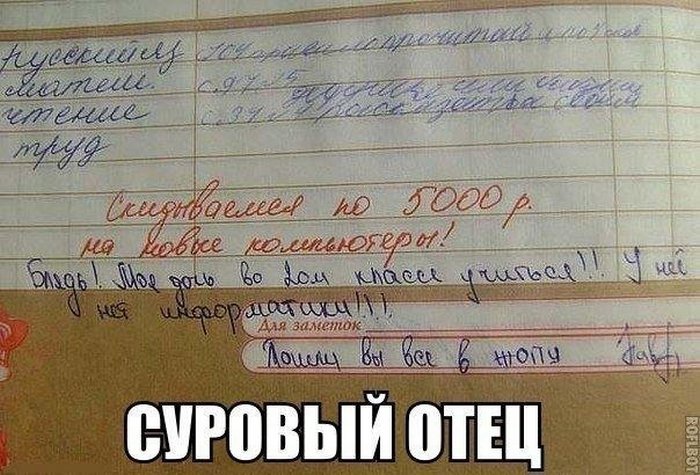 русский яз
матем. с.97
чтение с.39
труд
Скидываемся по 5000 р.
на новые компьютеры!
Блядь! Моя дочь во 2ом классе учиться!!! У неё
нет информатики!!!
Для заметок
Пошли вы все в жопу
СУРОВЫЙ ОТЕЦ